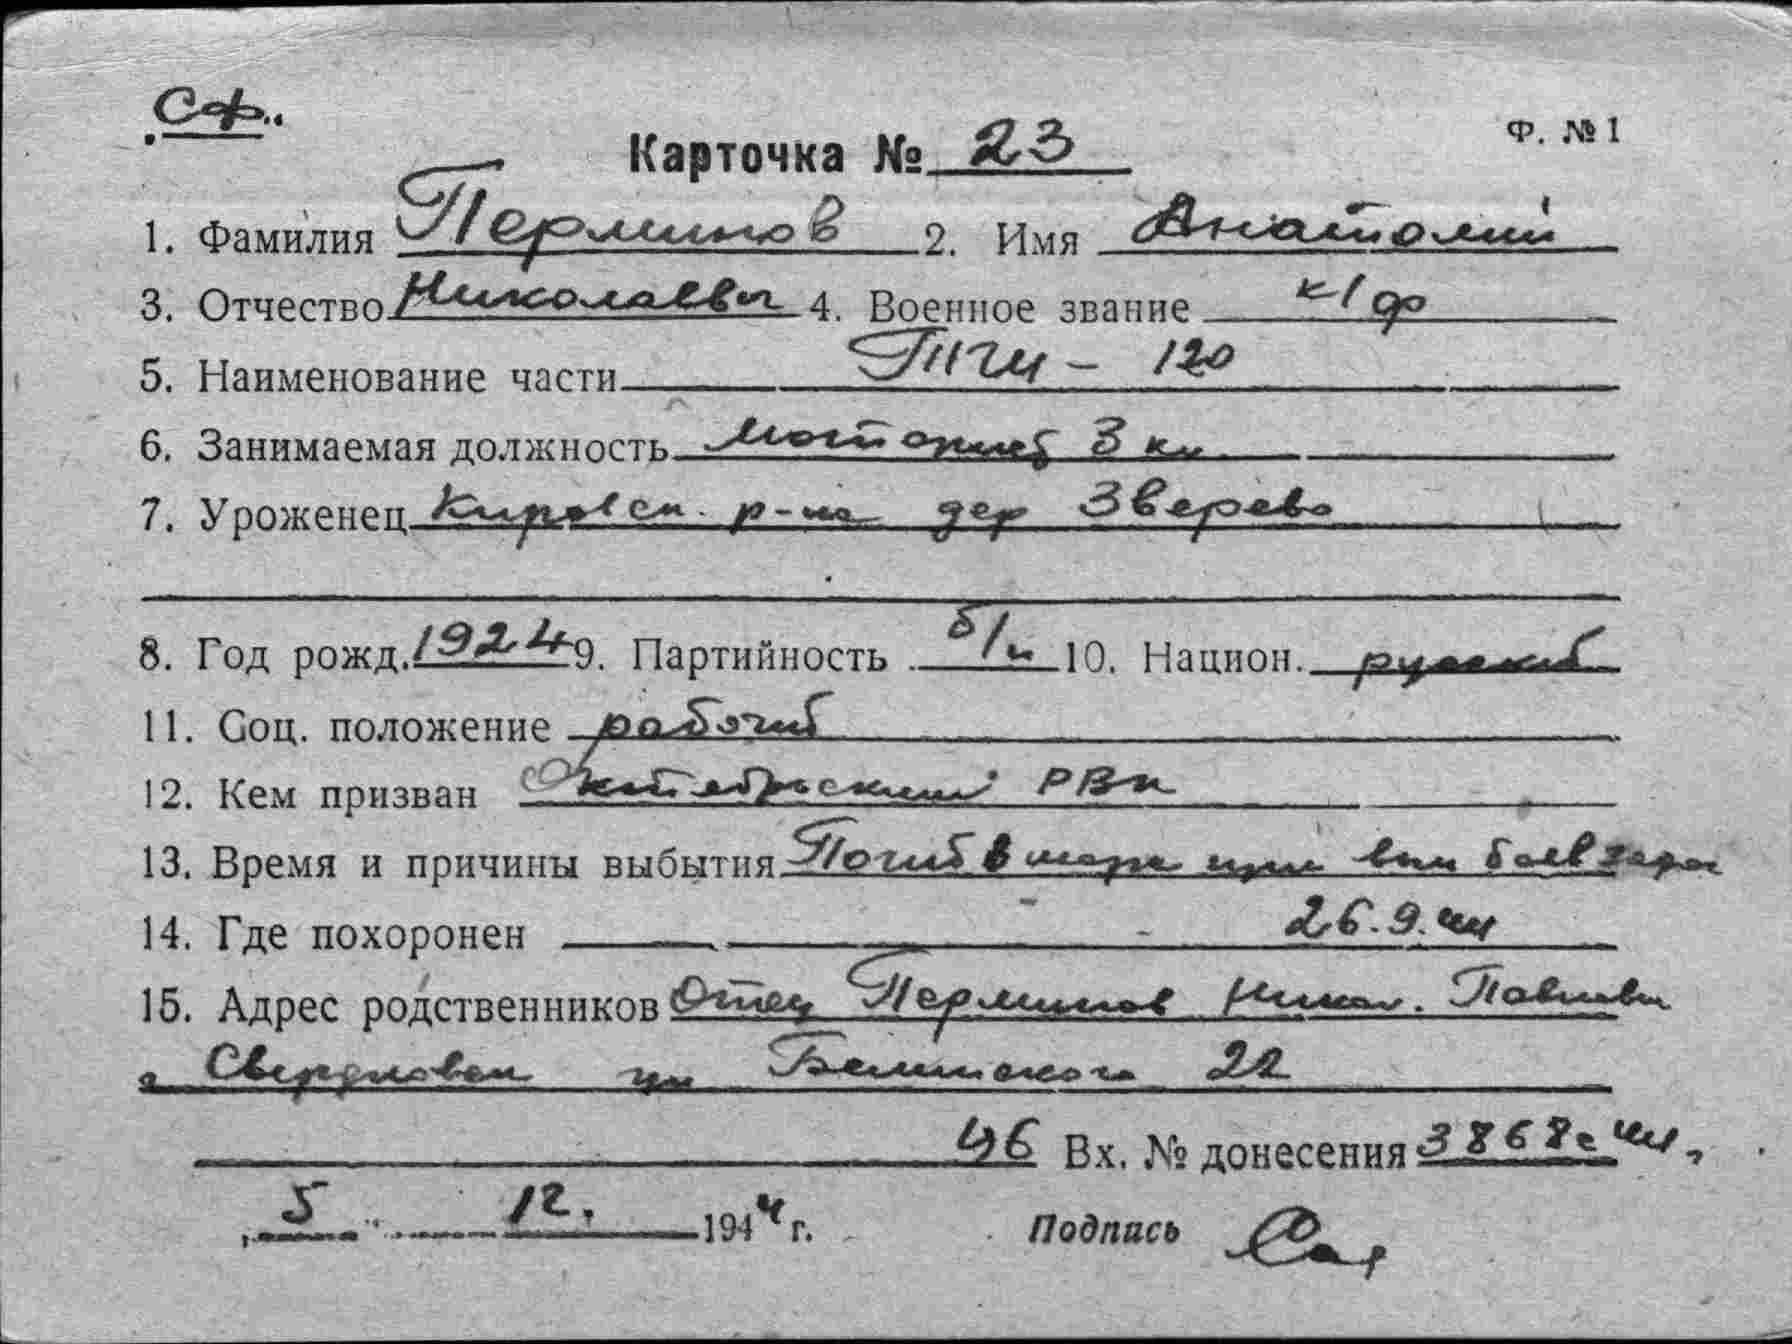 СФ.
Ф. №1
Карточка № 23
1. Фамилия Перминов 2. Имя Анатолий
3. Отчество Николаевич 4. Военное звание к/ф
5. Наименование части ТЩ - 120
6. Занимаемая должность моторист 3 кл
7. Уроженец Кировск. р-на дер Зверево
8. Год рожд. 1924 9. Партийность б/п 10. Национ. русский
11. Соц. положение рабочий
12. Кем призван Октябрьским РВК
13. Время и причины выбытия Погиб в море при вып боев задач
14. Где похоронен 26.9.44
15. Адрес родственников Отец Перминов Никол. Павлович
г Свердловск ул Белинского 22
46 Вх. № донесения 3868с 44
5 12. 1944 г. Подпись